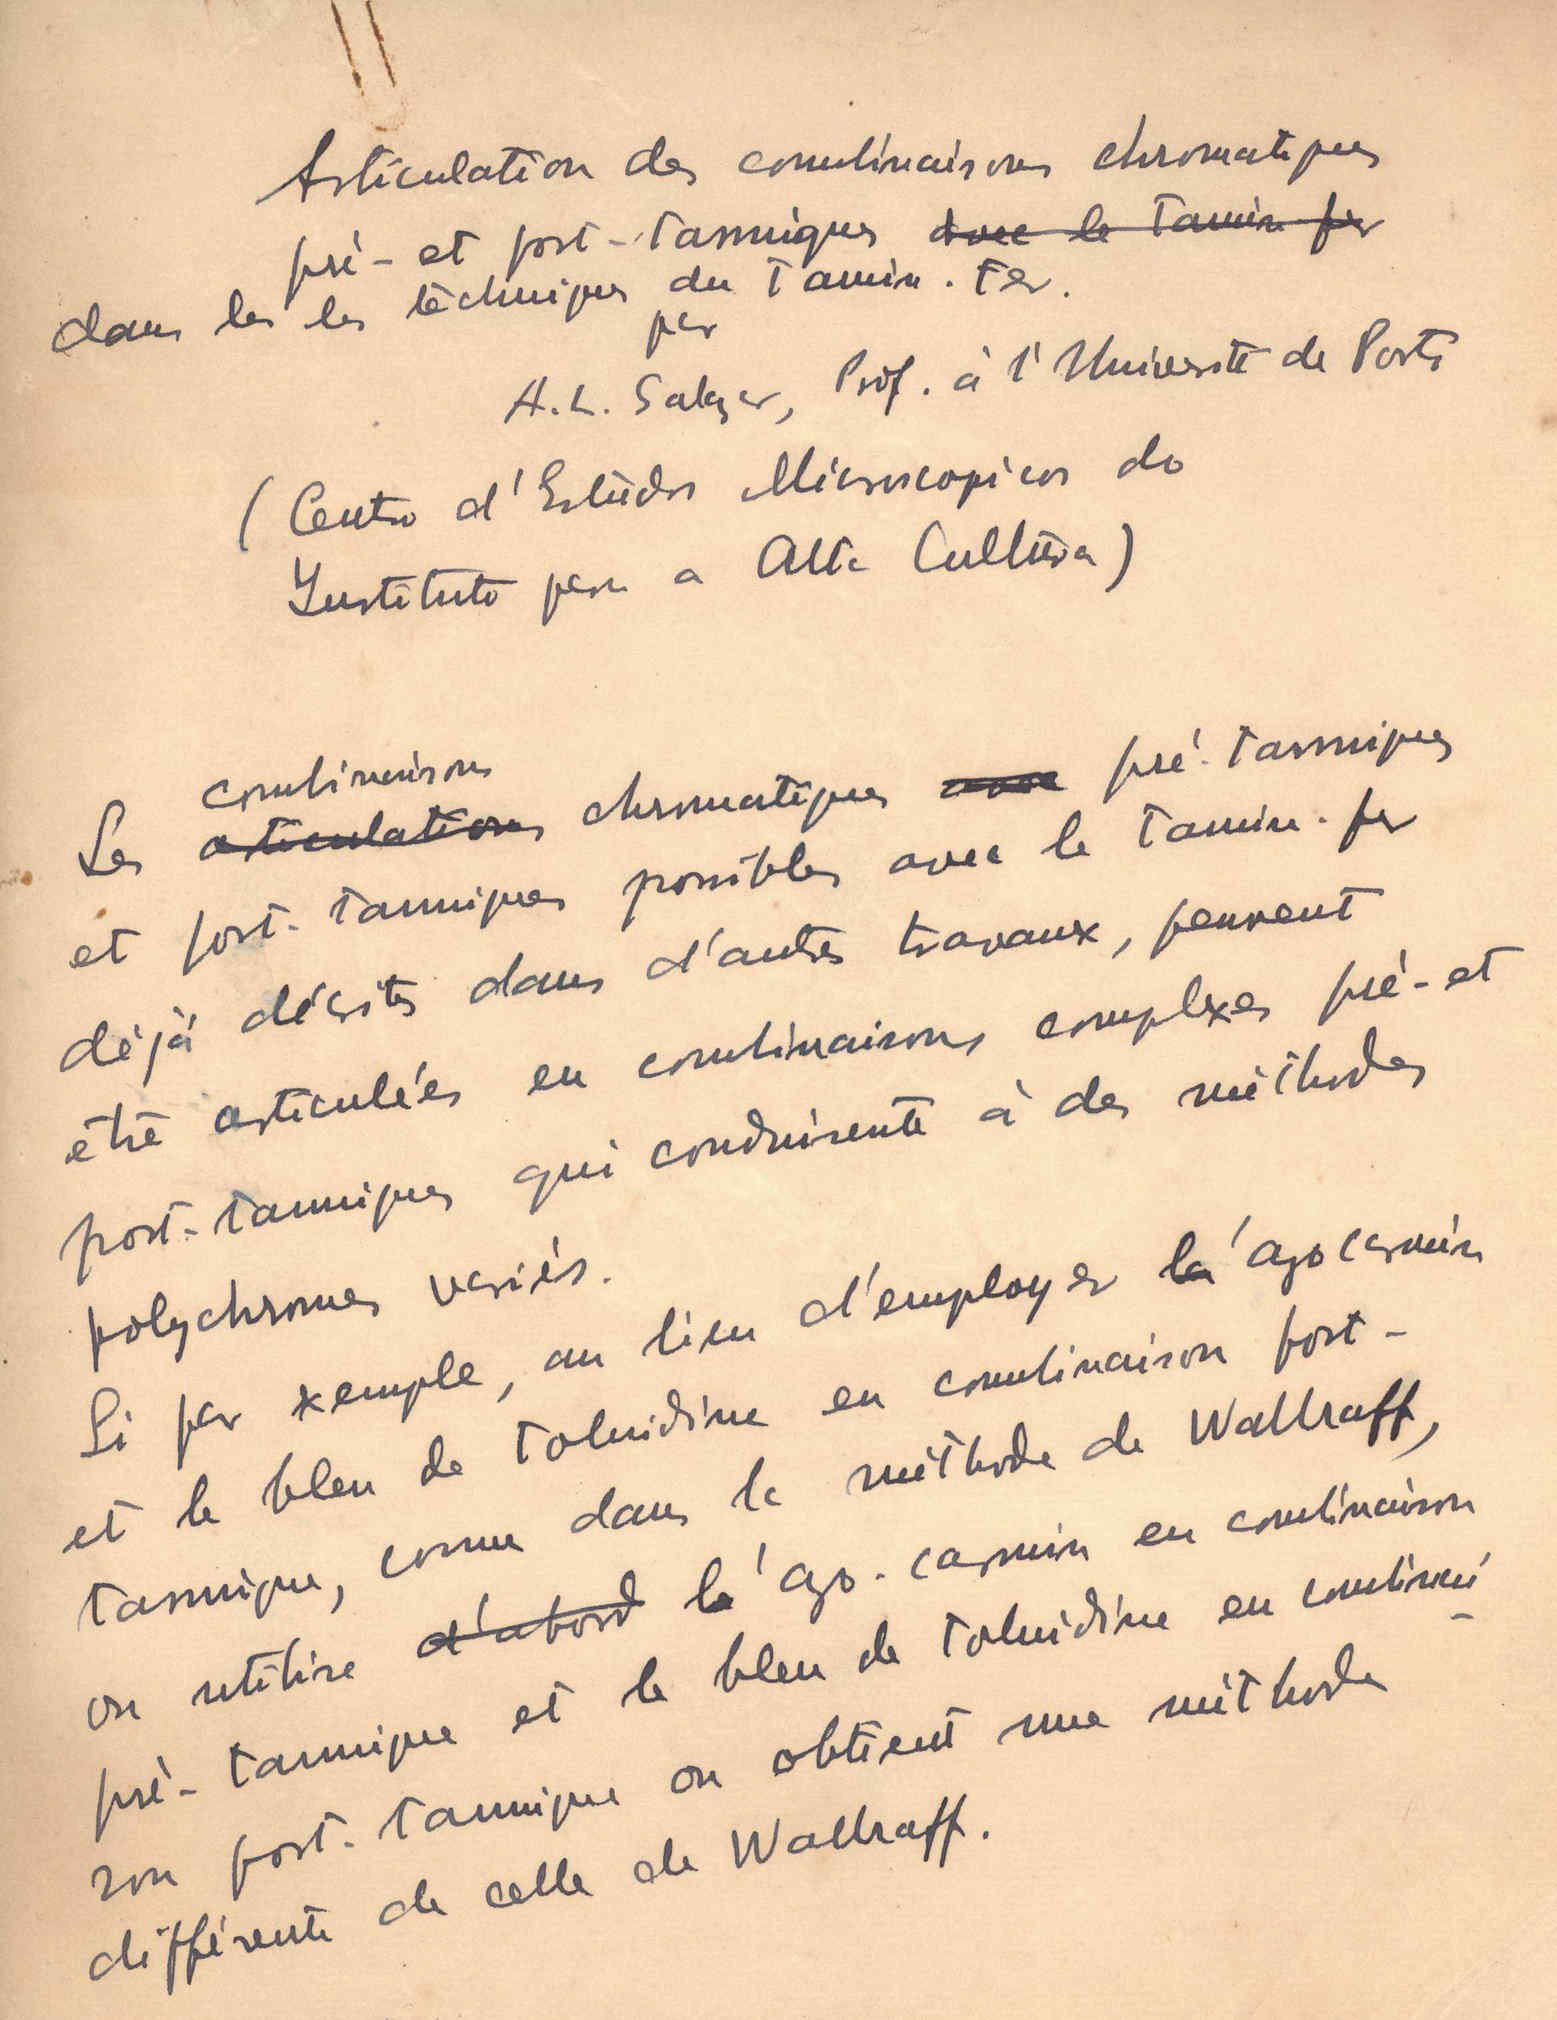 Articulation des combinaisons chromatiques
pré- et post-tanniques avec le Tannin fer
dans les les téchniques du Tannin-Fer.
par
A.L. Salazar, Prof. à l'Université de Porto
(Centro d'Estudos Microscopicos do
Instituto para a Alta Cultura)
combinaisons
Les articulations chromatiques avec pré-tanniques
et post-tanniques possibles avec le tannin-fer
déjà décrites dans d'autres travaux, peuvent
être articulées en combinaisons complxes pré- et
post-tanniques qui conduisente à des méthodes
polychromes variés.
Si par xemple, au lieu d'employer la' azocarmin
et le bleu de toluidine en combinaison post-
tannique, comme dans la méthode de Wallraff,
on utilise d'abord le' azo-carmin en combinaison
pré-tannique et le bleu de toluidine en combinai-
son post-tannique on obtient une méthode
différente de celle de Wallraff.